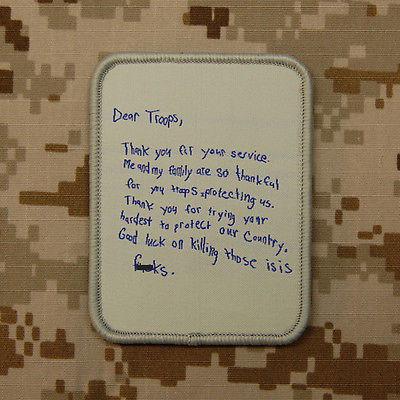 Dear Troops,
Thank you for your service.
Me and my family are so thankful
for you troops protecting us.
Thank you for trying your
hardest to protect our Country.
Good luck on killing those isis
f██ks.